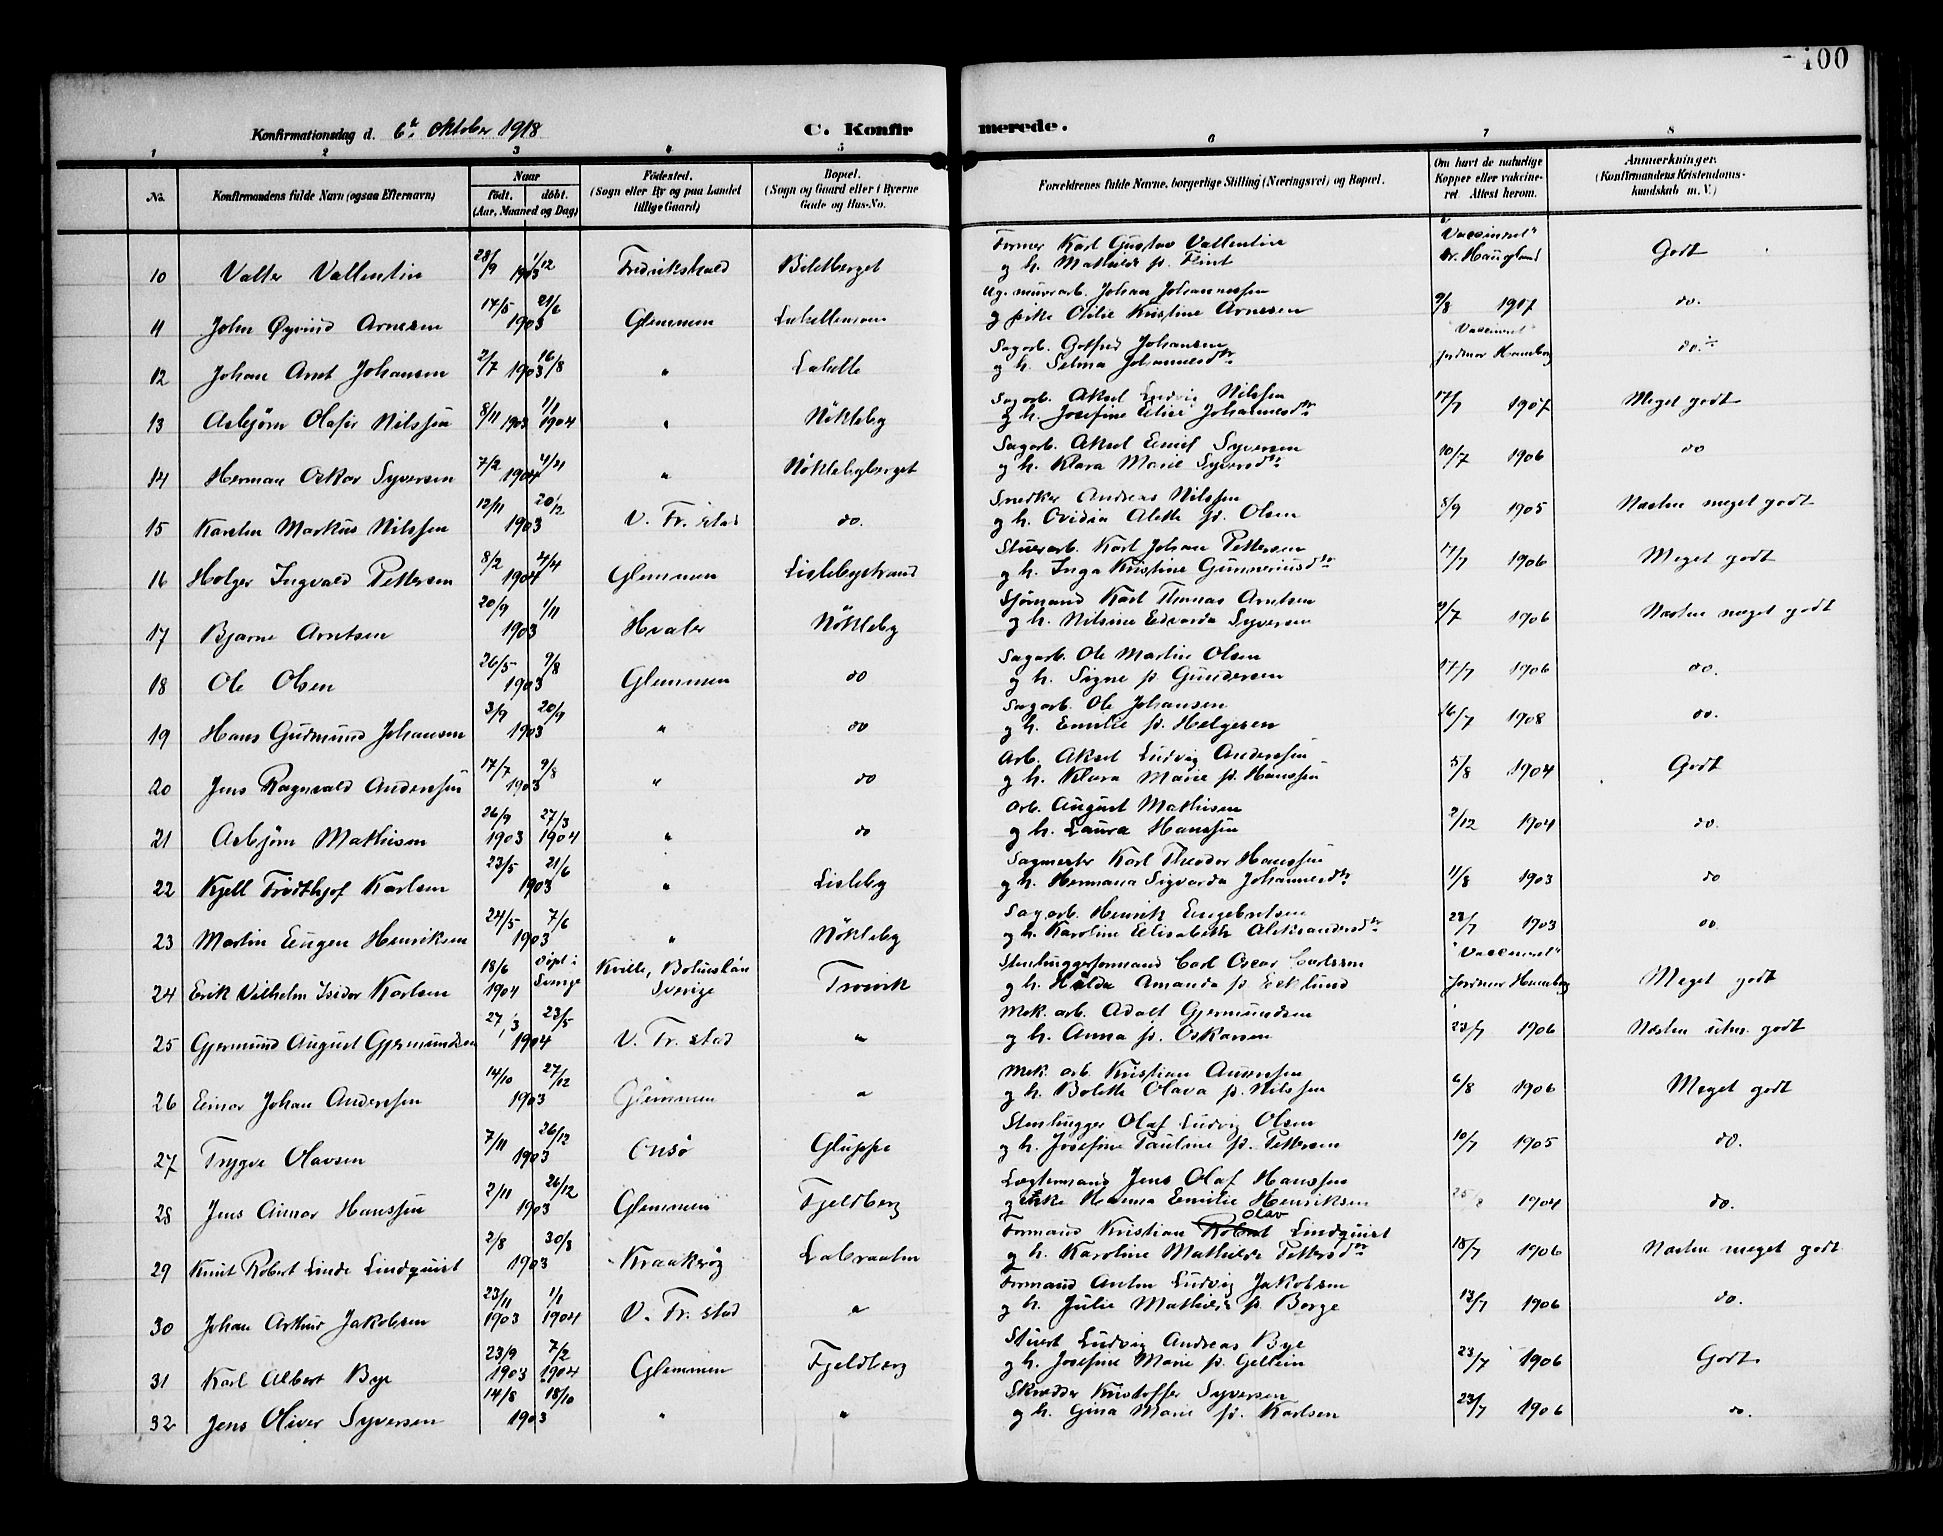 100
Konfirmationsdag d. 6te Oktober 1918 C. Konfirmerede.
1 2 3 4 5 6 7 8
No. Konfirmandens fulde Navn (ogsaa Efternavn) Naar født. døbt. (Aar, Maaned og Dag) Fødested. (Sogn eller By og paa Landet tillige Gaard) Bopæl. (Sogn og Gaard eller i Byerne Gade og Hus-No. Forældrenes fulde Navne, borgerlige Stilling (Næringsvei) og Bopæl. Om havt de naturlige Kopper eller vakcineret Attest herom. Anmerkninger. (Konfirmandens Kristendomskundskab m. V.)
10 Valter Vallentin 28/9 1/12 1903 Fredrikshald Bildberget Former Karl Gustav Vallentin "Vaccineret" Godt
g h. Mathilde f. Flint Dr. Haugland
11 John Øivind Arnesen 17/5 21/6 1903 Glemmen Ug. murarb. Johan Johannessen 9/8 1907 do.
g pike Otilie Kristine Arnesen
12 Johan Arnt Johansen 2/7 16/8 1903 " Lahelle Sagarb. Gotfred Johansen "Vaccineret" do.
g h. Selma Johannesdtr jordmor Hamborg
13 Asbjørn Olafir Nilssen 8/11 1903 1/1 1904 " Nökleby Sagarb. Aksel Ludvig Nilssen 17/7 1907 Meget godt
g h. Josefine Elise Johannesdtr
14 Herman Oskar Syversen 7/2 4/4 1904 " Nöklebyberget Sagarb. Aksel Emil Syversen 10/7 1906 do
g h. Klara Marie Syversdtr
15 Karsten Markus Nilssen 12/11 20/12 1903 V. Fr. stad do. Snedker Andreas Nilssen 8/9 1905 Næsten meget godt
g h. Ovidia Alette f. Olsen
16 Holger Ingvald Pettersen 8/2 4/4 1904 Glemmen Lislebystrand Stuerarb. Karl Johan Pettersen 17/7 1906 Meget godt
g h. Inga Kristine Gunneriusdtr
17 Bjarne Arntsen 20/9 1/11 1903 Hvaler Nökleby Sjømand Karl Thomas Arntsen 9/7 1906 Næsten meget godt
g h. Nilsine Edvarda Syversen
18 Ole Olsen 26/5 9/8 1903 Glemmen do Sagarb. Ole Martin Olsen 17/7 1906 do.
g h. Signe f. Gundersen
19 Hans Gudmund Johansen 3/9 20/9 1903 " do Sagarb. Ole Johansen 16/7 1908 do.
g h. Emilie f. Helgesen
20 Jens Ragnvald Anderssen 17/7 9/8 1903 " do Arb. Aksel Ludvig Anderssen 5/8 1904 Godt
g h. Klara Marie f. Hanssen
21 Asbjørn Mathisen 26/9 1903 27/3 1904 " do Arb. August Mathisen 2/12 1904 do.
g h. Laura Hanssen
22 Kjell Fridthjof Karlsen 23/5 21/6 1903 " Lisleby Sagmester Karl Theodor Hanssen 11/8 1903 do
g h. Hermana Sigvarda Johannesdtr
23 Martin Eugen Henriksen 24/5 7/6 1903 " Nökleby Sagarb. Henrik Engebretsen 22/7 1903 do.
g h. Karoline Elisabeth Aleksandersdtr
24 Erik Vilhelm Isidor Karlsen 18/6 1904 Døpt i Sverige Kville, Bohuslän Sverige Trosvik Stenhuggerformand Carl Oscar Carlsson "Vaccineret" Meget godt
g h. Hilda Amanda f. Eeklund Jordmor Hamborg
25 Gjermund August Gjermundsen 27/3 23/5 1904 V. Fr. stad " Mek. arb. Adolf Gjermundsen 23/7 1906 Næsten utm. godt
g h. Anna f. Oskarsen
26 Einar Johan Anderssen 14/10 27/12 1903 Glemmen " Mek. arb. Kristian Anderssen 6/8 1906 Meget godt
g h. Bolette Olava f. Nilssen
27 Trygve Olavsen 7/11 26/12 1903 Onsö Gluppe Stenhugger Olaf Ludvig Olsen 10/7 1905 do.
g h. Josefine Pauline f. Pettersen
28 Jens Einar Hanssen 2/11 26/12 1903 Glemmen Fjeldberg Lægtemand Jens Olaf Hanssen 1904 do.
g enke Hanna Emilie Henriksen
29 Knut Robert Linde Lindquist 2/8 30/8 1903 Kraakerøy Labraaten Formand Kristian Olav Lindquist 18/7 1906 Næsten meget godt
g h. Karoline Mathilde Pettersdtr
30 Johan Arthur Jakobsen 23/11 1903 1/1 1904 V. Fr. stad " Formand Anton Ludvig Jakobsen 12/7 1906 do.
g h. Julie Mathilde f. Borge
31 Karl Albert Bye 23/9 1903 7/2 1904 Glemmen Fjeldberg Stuert Ludvig Andreas Bye 23/7 1906 Godt
g h. Josefine Marie f. Gellein
32 Jens Oliver Syversen 14/8 18/10 1903 " " Skrædder Kristoffer Syversen 23/7 1906 do.
g h. Gina Marie f. Karlsen